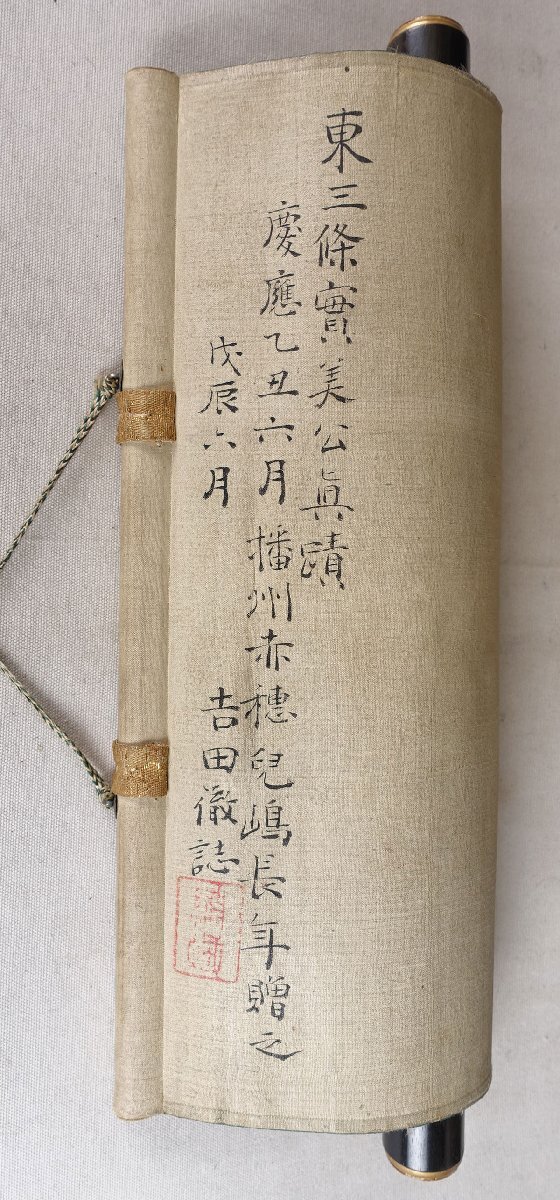 東三條實美公眞蹟
慶應乙丑六月播州赤穗兒嶋長年贈之
戊辰六月
吉田徴誌